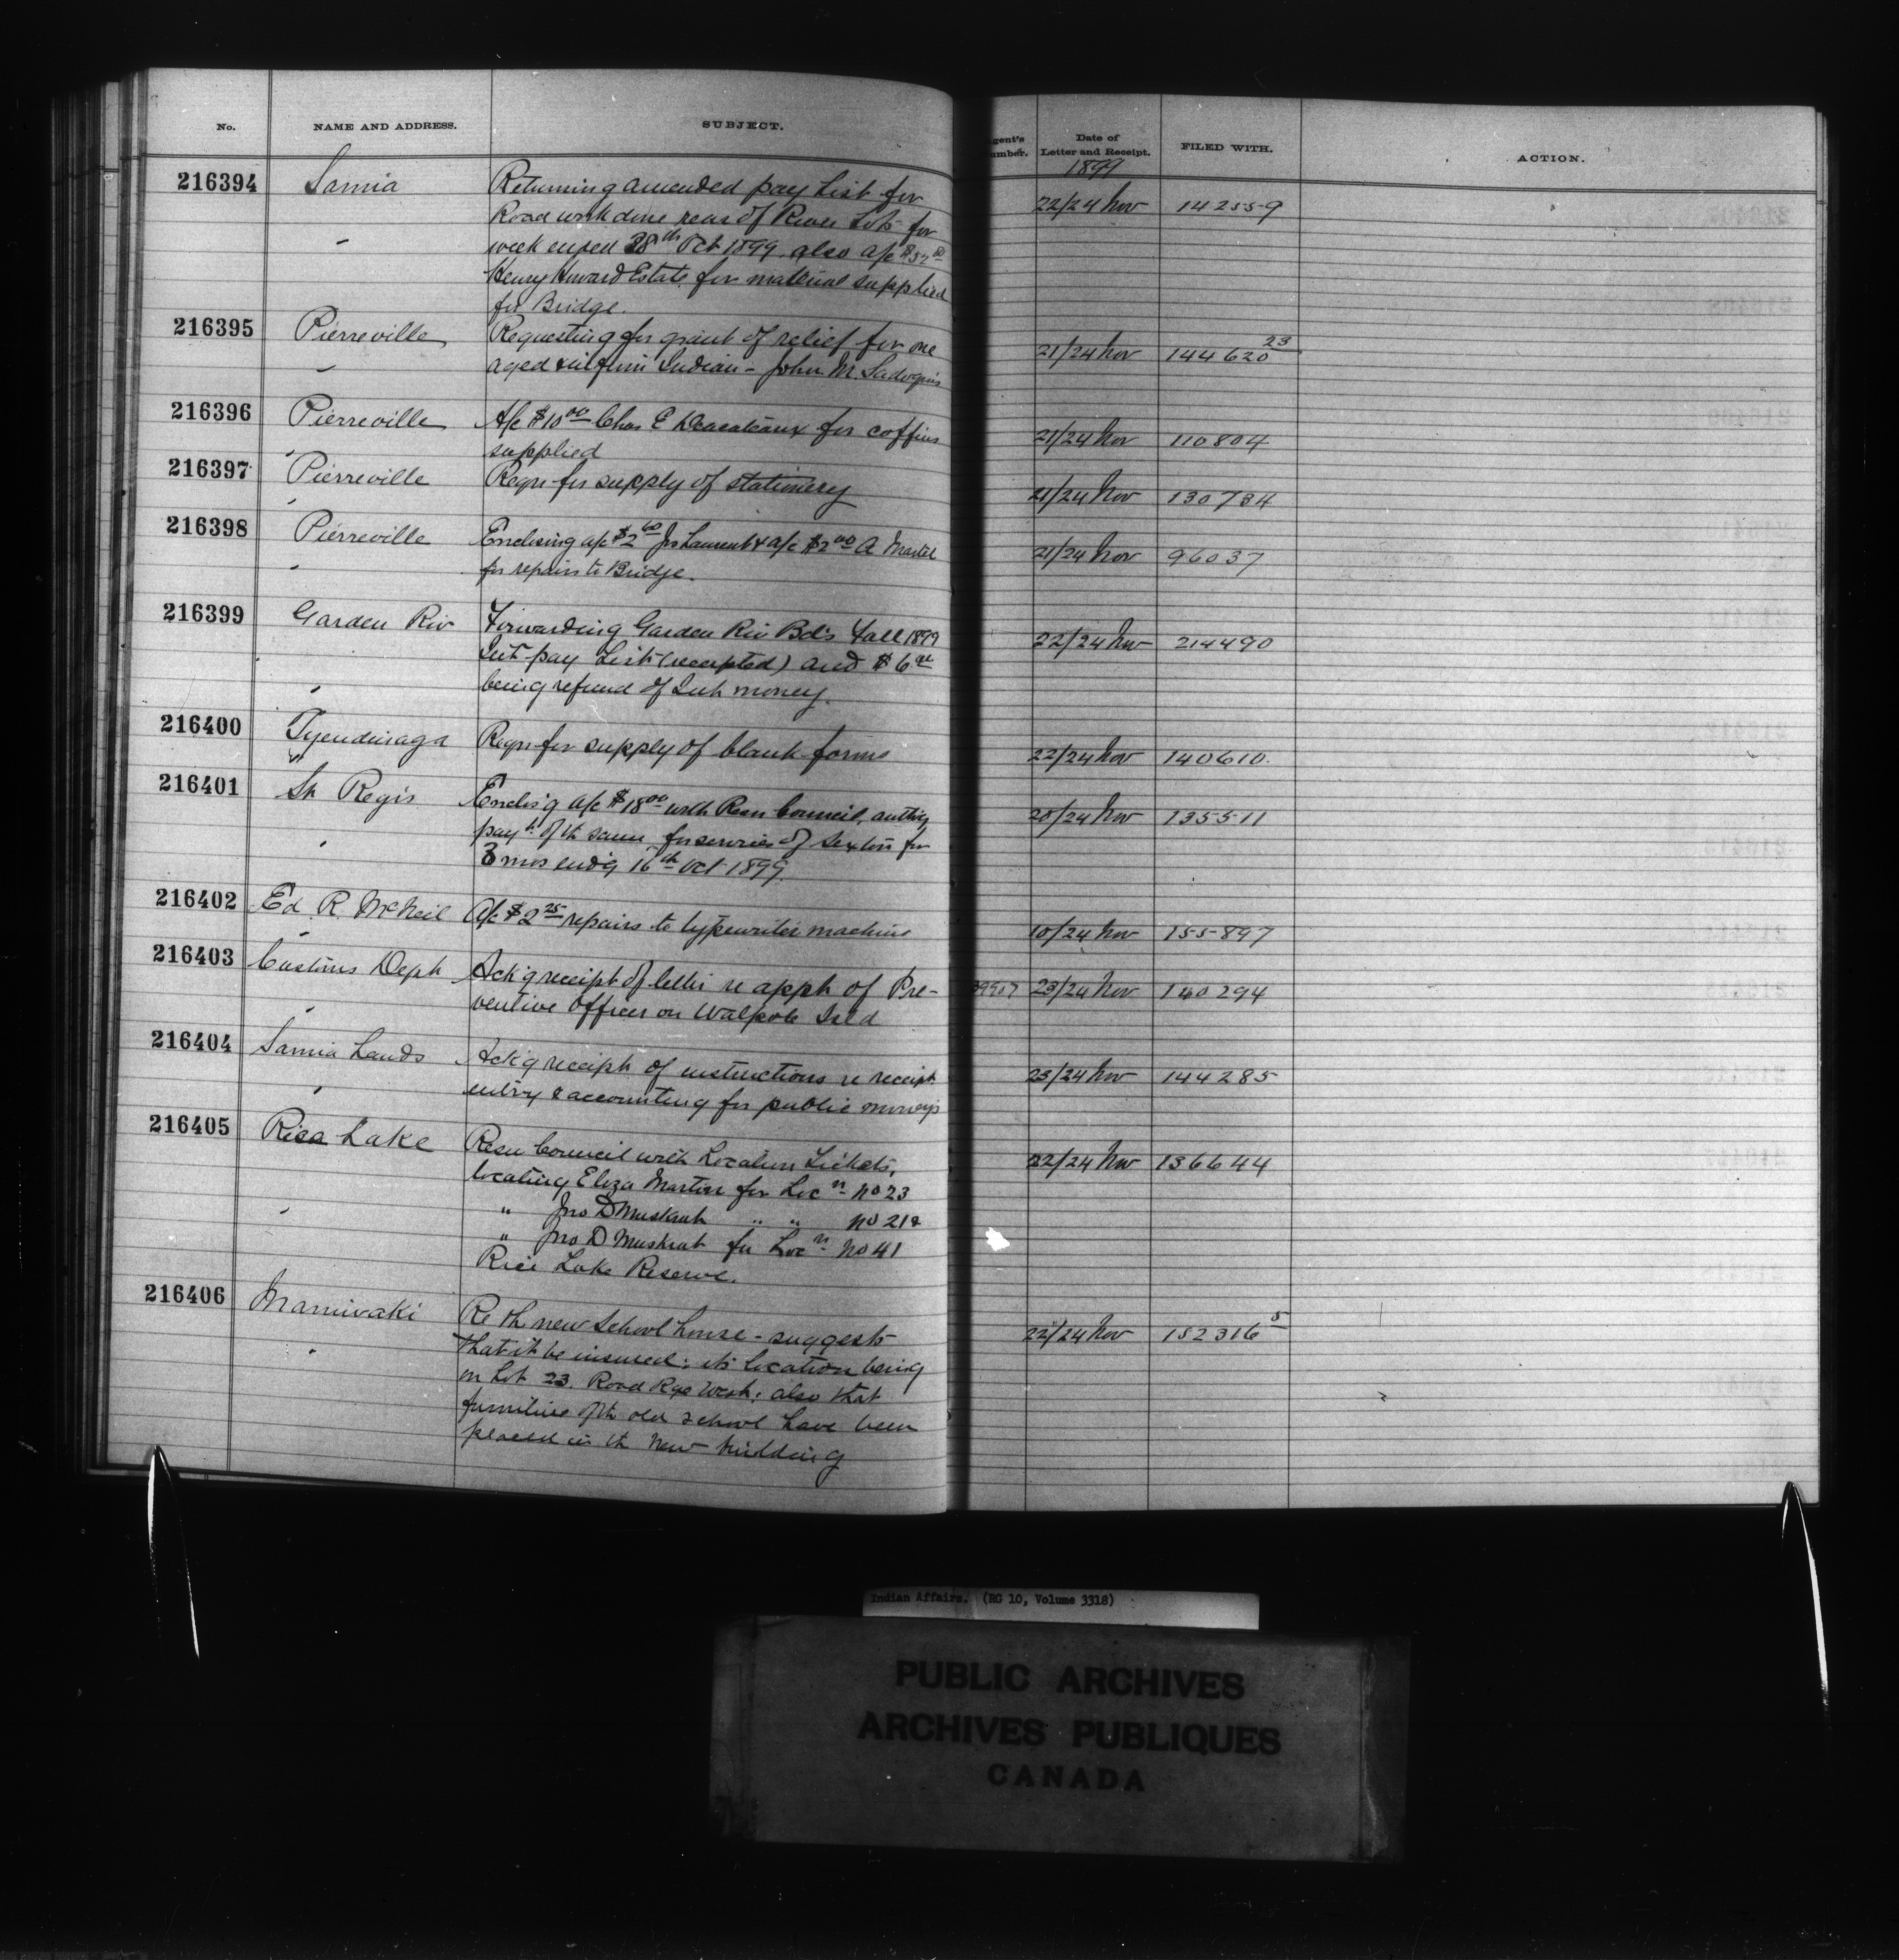 No. NAME AND ADDRESS. SUBJECT. gent's umber. Date of Letter and Receipt. FILED WITH. ACTION.
1899
216394 Sarnia Returning amended pay List for 22/24 Nov 142559
Road work done rear of River Lots for
week ended 28th Oct 1899. also a/c
Henry Howard Estate for material supplied
for Bridge.
216395 Pierreville Requesting for grant of relief for one 21/24 Nov 144620 23
aged & infirm Indian - John M.
216396 Pierreville A/c $10 00 Chas E for coffins 21/24 Nov 110804
supplied
216397 Pierreville Reqn for supply of stationery 21/24 Nov 130734
216398 Pierreville Enclosing a/c $2 60 Jos Laurent & a/c $2 00 A Martel 21/24 Nov 96037
for repairs to Bridge.
216399 Garden Riv Forwarding Garden Riv Bd's Fall 1899 22/24 Nov 214490
Int pay List (receipted) and $6
being refund of Int money.
216400 Tyendinaga Reqn for supply of blank forms 22/24 Nov 140610.
216401 St Regis Enclos'g a/c $18 00 with Resn Council, 20/24 Nov 135511
payt of th same for services of Sexton for
3 mos end'g 16th Oct 1899.
216402 Ed. R. McNeil A/c $2 25 repairs to typewriter machine 10/24 Nov 155897
216403 Customs Dept Ack'g receipt of letter re appt of Pre- 23/24 Nov 140294
ventive Officer on Walpole Isld
216404 Sarnia Lands Ack'g receipt of instructions re receipt 23/24 Nov 144285
entry & accounting for public moneys
216405 Rice Lake Resn Council with Location Tickets, 22/24 Nov 136644
locating Eliza Martin for Locn No 23
" Jno D Muskrat " " No 21
" Jno D Muskrat for Locn No 41
Rice Lake Reserve.
216406 Maniwaki Re th new School house - suggests 22/24 Nov 152316 5
that it be insured: its location being
on Lot 23. Road Rge West: also that
furniture of th old school have been
placed in th new building
Indian Affairs. (RG 10, Volume 3318)
PUBLIC ARCHIVES
ARCHIVES PUBLIQUES
CANADA